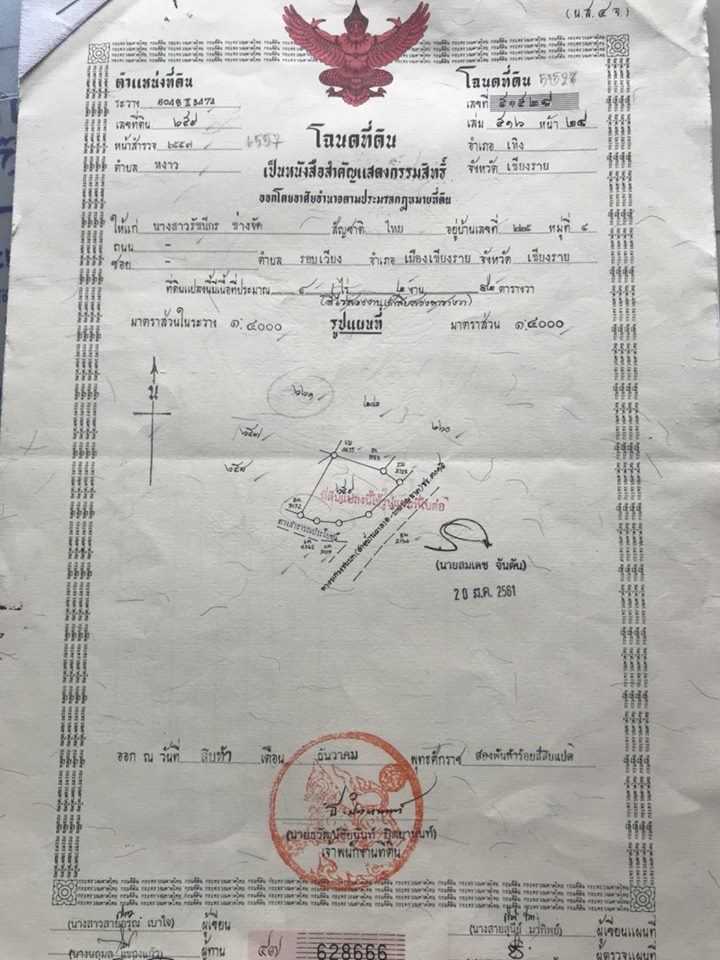 (น.ส.๔ จ.)
ตำแหน่งที่ดิน
ระวาง
เลขที่ดิน ๒๕๙
หน้าสำรวจ ๒๕๕๗
ตำบล หงาว
โฉนดที่ดิน
เลขที่ ๕๑๕๒๘
เล่ม ๕๑๖ หน้า ๒๘
อำเภอ เทิง
จังหวัด เชียงราย
โฉนดที่ดิน
เป็นหนังสือสำคัญแสดงกรรมสิทธิ์
ออกโดยอาศัยอำนาจตามประมวลกฎหมายที่ดิน
ให้แก่ นางสาวรัชนีกร ช่างจัด สัญชาติ ไทย อยู่บ้านเลขที่ หมู่ที่ ๔
ถนน -
ซอย - ตำบล รอบเวียง อำเภอ เมืองเชียงราย จังหวัด เชียงราย
ที่ดินแปลงนี้มีเนื้อที่ประมาณ ๔ ไร่ ๒ งาน ๕๒ ตารางวา
(สี่ไร่สองงานห้าสิบสองตารางวา)
มาตราส่วนในระวาง ๑:๔๐๐๐ รูปแผนที่ มาตราส่วน ๑:๔๐๐๐
น
๒๕๗
๒๕๘
๒๖๐
๒๕๙
ที่ดินแปลงนี้ใช้รูปแผนที่ใบต่อ
ทางสาธารณประโยชน์
(นายสมเดช จันต๊น)
20 ม.ค. 2561
ออก ณ วันที่ สิบห้า เดือน ธันวาคม พุทธศักราช สองพันห้าร้อยสี่สิบแปด
เจ้าพนักงานที่ดิน
(นางสาวสายอรุณ เบาใจ) ผู้เขียน
ผู้เขียนแผนที่
ผู้ทาน
ผู้ตรวจแผนที่
๕๗ 628666